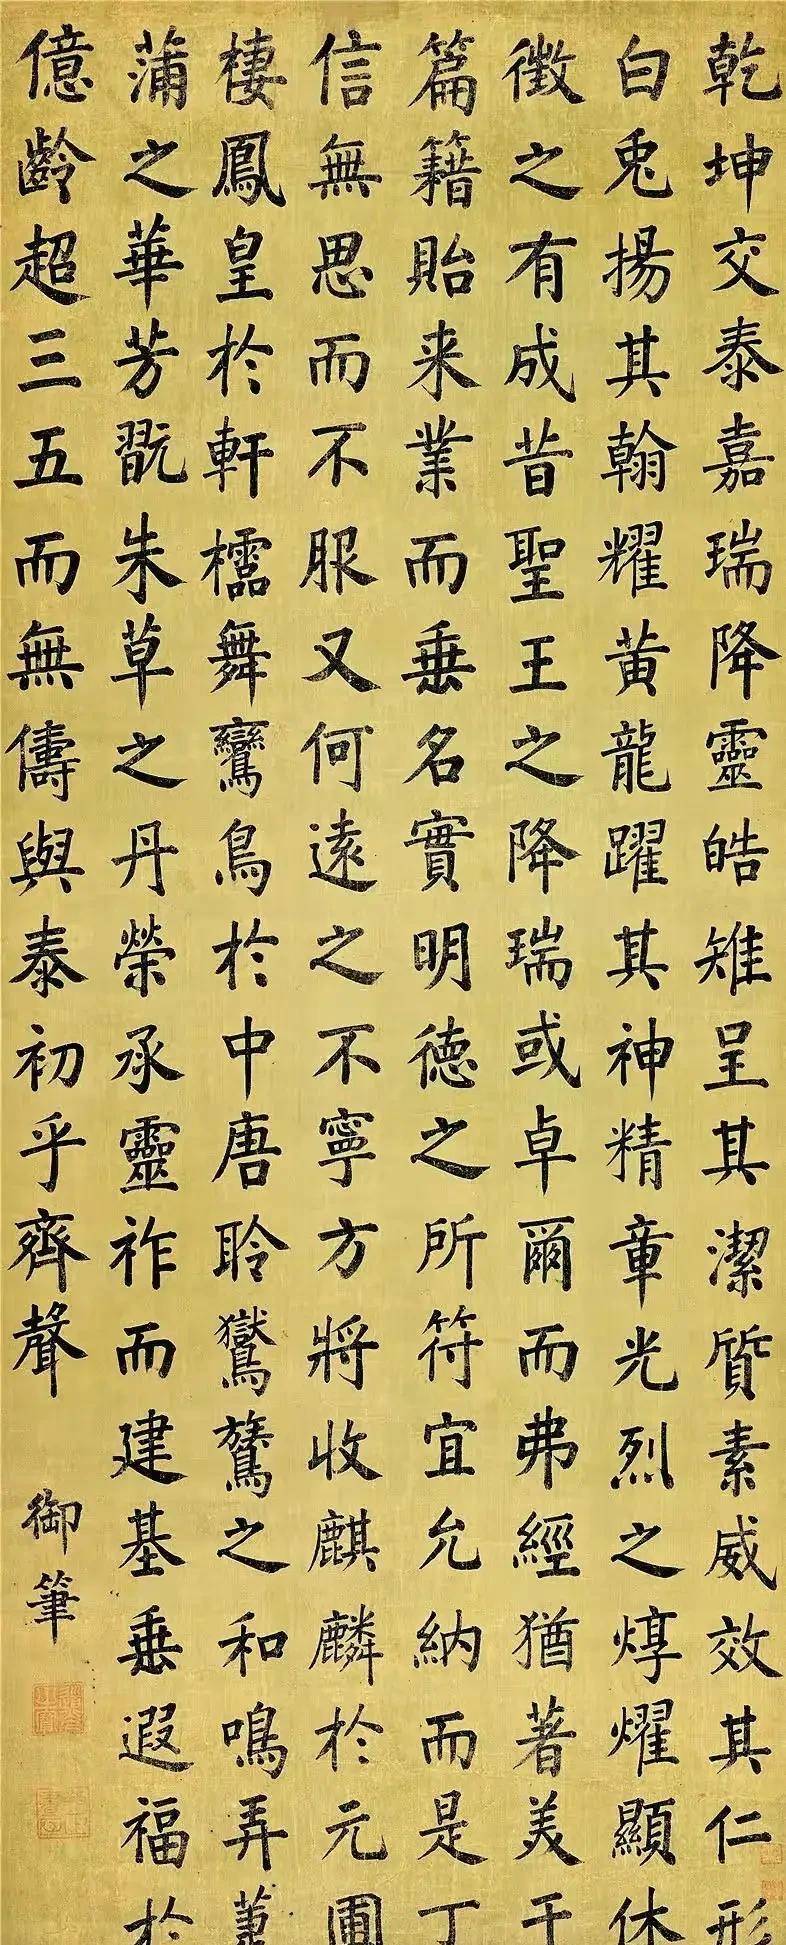 乾坤交泰嘉瑞降靈皓雉呈其潔質素威效其仁形
白兎揚其翰耀黃龍躍其神精章光烈之焞燿顯休
徵之有成昔聖王之降瑞或卓爾而弗經猶著美于
篇籍貽来業而垂名實明德之所符宜允納而是丁
信無思而不服又何遠之不寧方將收麒麟於元圃
棲鳳皇於軒櫺舞鸞鳥於中唐聆鸑鷟之和鳴弄萐
蒲之華芳翫朱草之丹榮承靈祚而建基垂遐福於
億齡超三五而無儔與泰初乎齊聲
御筆